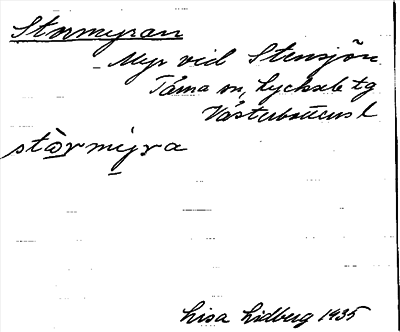 Stormyran
Myr vid Stensjön
Tärna sn, Lycksele tg
Västerbottens l
stòrmyra
Lisa Lidberg 1935